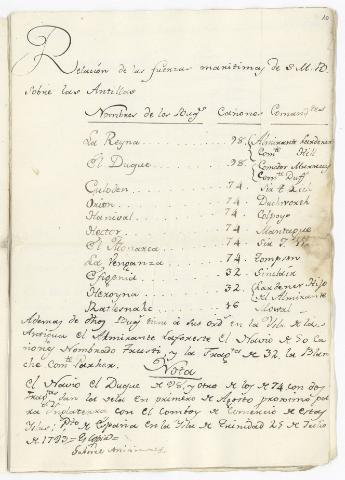 10
Relación de las fuerzas maritimas de S. M. B.
sobre las Antillas
Nombres de los Buq.s Cañones Comand.tes
La Reyna 98. Almirante Gardener
Com.te Hill
El Duque 98. Comdor Murray
Com.te Duff
Culoden 74. Sir T. Rich
Orion 74. Duckworth
Hanival 74. Colpoys
Hector 74. Montague
El Monarca 74. Sir J.
La Venganza 74. Tompson
Efigenia 32. Sinclair
Heroyna 32. Gardener Hijo
del Almirante
Ratlesnake 16 Mowat
Ademas de dhos Buq.s tiene á sus ord.s en la Ysla de la
Antigua el Almirante Laforeste el Navio de 50 Ca
ñones Nombrado Trusti y la Frag.ta de 32. la Blan
che Com.te Parker.
Nota
El Navio El Duque de 98, y otro de los de 74 con dos
Frag.tas dan la vela en primero de Agosto proximo pa
ra Ynglaterra con el Comboy de Comercio de estas
Yslas; P.to de España en la Ysla de Trinidad 25 de Julio
de 1793 = Es Copia =